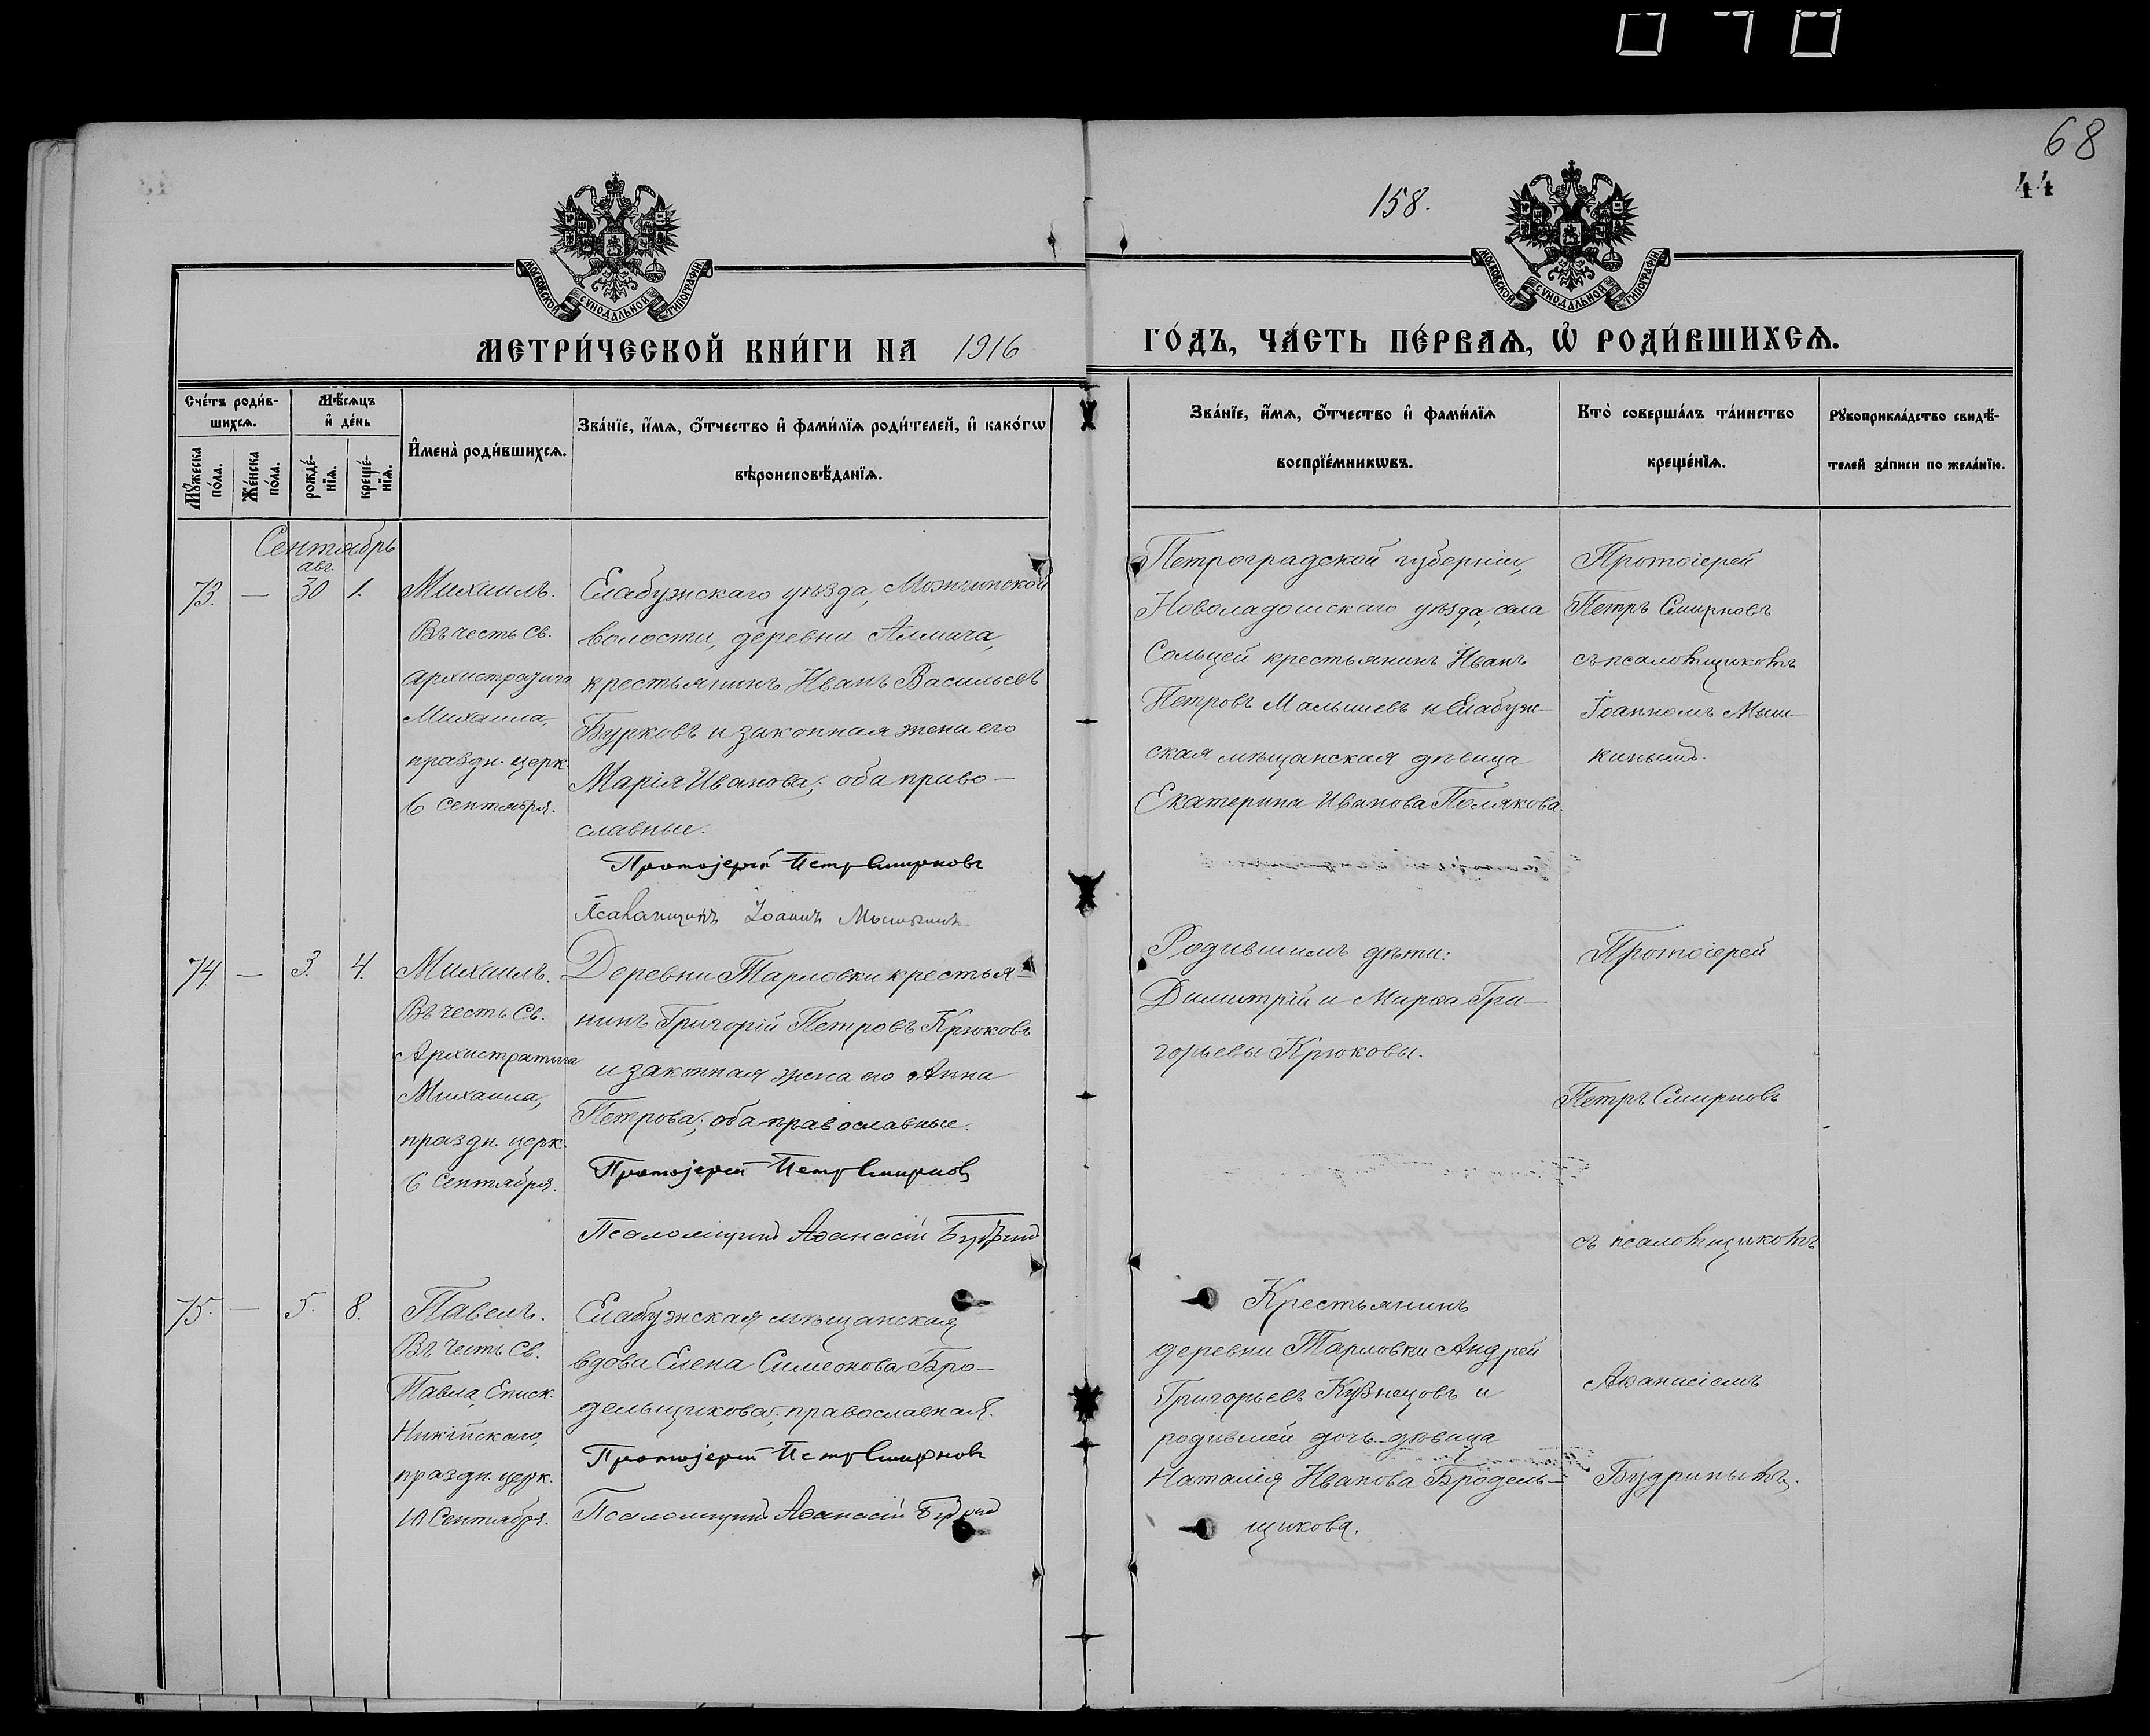 070
68
44
158.
МОСКОВСКОЙ СѴНОДАЛЬНОЙ ТИПОГРАФІИ
МОСКОВСКОЙ СѴНОДАЛЬНОЙ ТИПОГРАФІИ
МЕТРИ́ЧЕСКОЙ КНИ́ГИ НА 1916
ГО́ДЪ, ЧА́СТЬ ПЕ́РВАѦ, Ѡ҆ РОДИ́ВШИХСѦ.
Сче́тъ роди́в-
шихсѧ.
Мꙋ́жеска
по́ла.
Же́нска
по́ла.
Мѣ́сѧцъ
и҆ де́нь
рожде́-
нїѧ.
креще́-
нїѧ.
И҆мена̀ роди́вшихсѧ.
Зва́нїе, и҆́мѧ, ѻ҆́тчество и҆ фами́лїѧ роди́телей, и҆ како́гѡ
вѣроисповѣ́данїѧ.
Зва́нїе, и҆́мѧ, ѻ҆́тчество и҆ фами́лїѧ
воспрїе́мникѡвъ.
Кто̀ соверша́лъ та́инство
креще́нїѧ.
Рꙋкоприкла́дство свидѣ́-
телей за́писи по жела́нїю.
Сентябрь
авг.
73. — 30 1.
Михаилъ.
Въ честь св.
Архистратига
Михаила,
праздн. церк.
6 сентября.
Елабужскаго уѣзда, Можгинской
волости, деревни
крестьянинъ Иванъ Васильевъ
Бурковъ и законная жена его
Марія Иванова; оба право-
славные.
Протоіерей Петръ Смирновъ
Псаломщикъ Іоаннъ Мышкинъ
Петроградской губерніи,
Новоладожскаго уѣзда, села
Сольцей крестьянинъ Иванъ
Петровъ Малышевъ и Елабуж-
ская мѣщанская дѣвица
Екатерина Иванова Полякова.
Протоіерей
Петръ Смирновъ
съ псаломщикомъ
Іоанномъ Мыш-
кинымъ.
74. — 3. 4.
Михаилъ.
Въ честь св.
Архистратига
Михаила,
праздн. церк.
6 Сентября.
Деревни Тарловки крестья-
нинъ Григорій Петровъ Крюковъ
и законная жена его Анна
Петрова; оба православные.
Протоіерей Петръ Смирновъ
Псаломщикъ Аѳанасій Будринъ
Родившимъ дѣти:
Димитрій и Марѳа Гри-
горьевы Крюковы.
Протоіерей
Петръ Смирновъ
съ псаломщикомъ
75. — 5. 8.
Павелъ.
Въ честь св.
Павла, Еписк.
Никійскаго,
праздн. церк.
10 Сентября.
Елабужская мѣщанская
вдова Елена Симеонова Бро-
дельщикова; православная.
Протоіерей Петръ Смирновъ
Псаломщикъ Аѳанасій Будринъ
Крестьянинъ
деревни Тарловки Андрей
Григорьевъ Кузнецовъ и
родившей дочь дѣвица
Наталія Иванова Бродель-
щикова.
Аѳанасіемъ
Будринымъ.